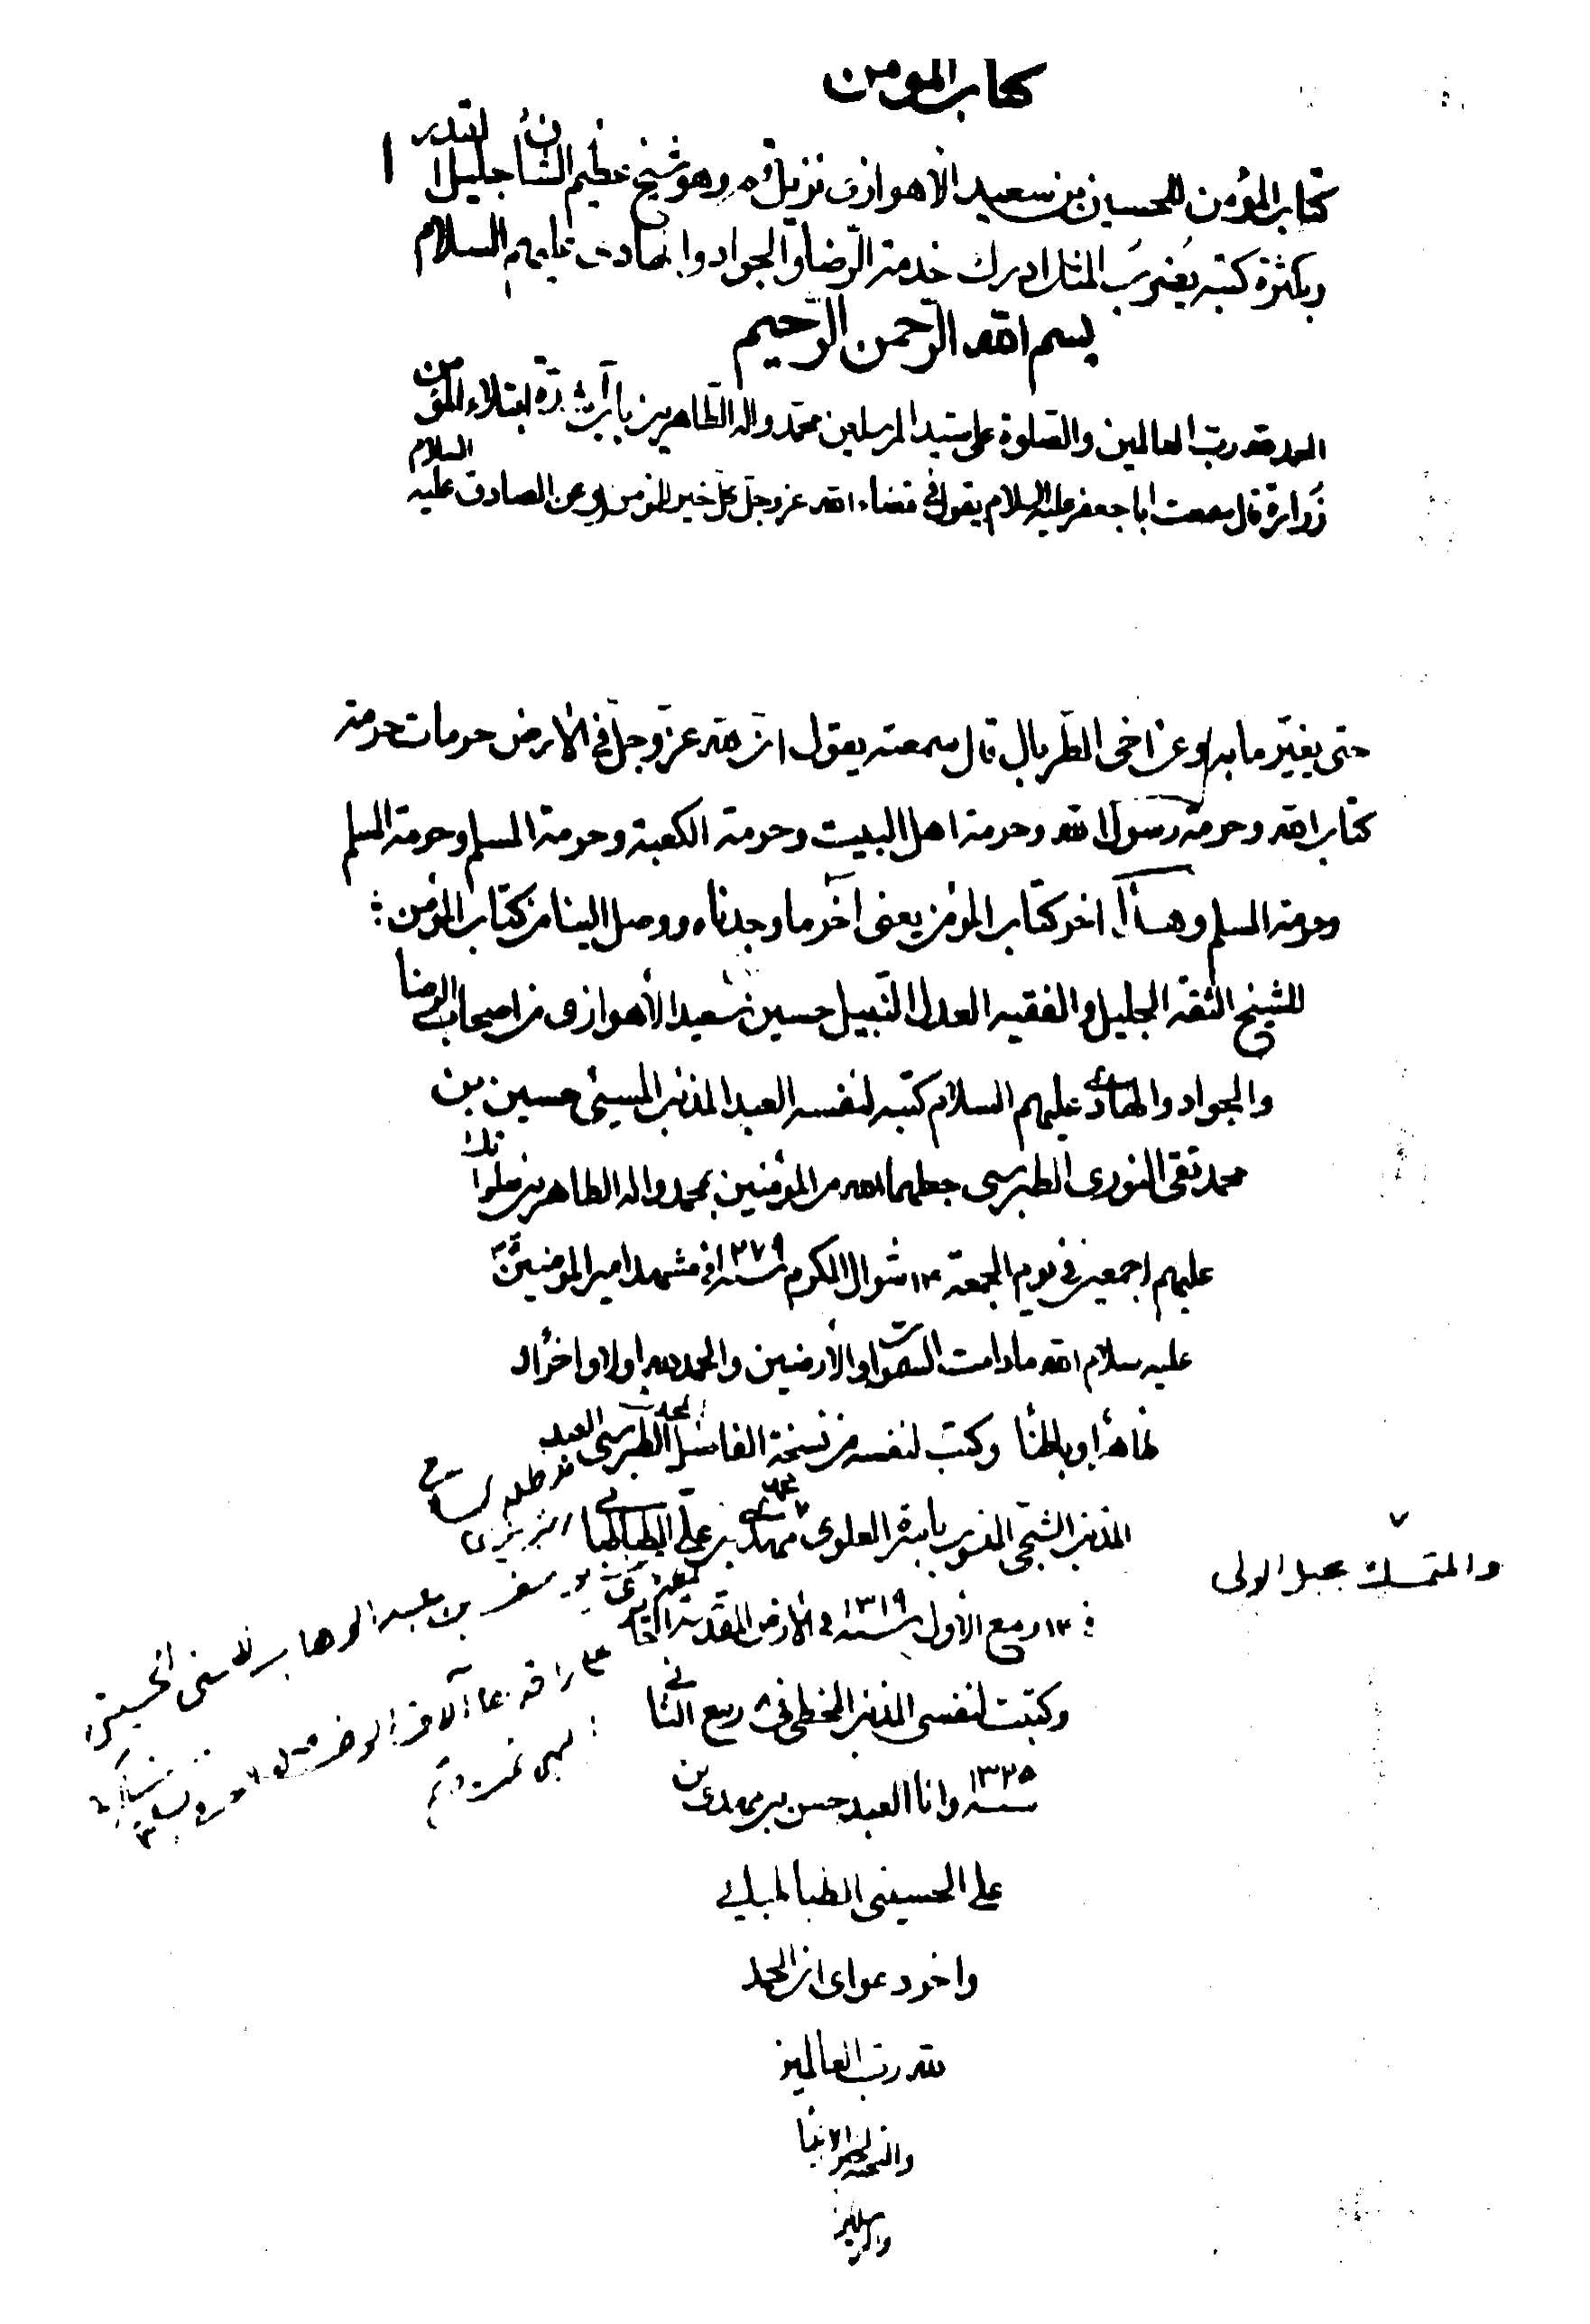 كتاب المومن
كتاب المؤمن للحسين بن سعيد الأهوازي نزيل قم وهو شيخ عظيم الشأن جليل القدر
وبكثرة كتبه يضرب المثل ادرك خدمة الرضا والجواد والهادي عليهم السلام
بسم الله الرحمن الرحيم
الحمد لله رب العالمين والصلوة على سيد المرسلين محمد واله الطاهرين باب شدة ابتلاء المؤمن
زرارة قال سمعت ابا جعفر عليه السلام يقول في قضاء الله عز وجل كل خير للمؤمن وعن الصادق عليه السلام
حتى يغير ما به وعن اخي الطربال قال سمعته يقول ان لله عز وجل في الأرض حرمات حرمة
كتاب الله وحرمة رسول الله وحرمة اهل البيت وحرمة الكعبة وحرمة المسلم وحرمة المسلم
وحرمة المسلم وهذا اخر كتاب المؤمن يعنى آخر ما وجدناه ووصل الينا من كتاب المؤمن
للشيخ الثقة الجليل والفقيه العدل النبيل حسين بن سعيد الأهوازي من اصحاب الرضا
والجواد والهادي عليهم السلام كتبه لنفسه العبد المذنب المسيئ حسين بن
محمد تقى النوري الطبرسي جعلهما الله من المؤمنين بمحمد واله الطاهرين صلوا تك
عليهم اجمعين في يوم الجمعة ١٣ شوال المكرم سنة ١٢٧٩ في مشهد امير المومنين
عليه سلام الله ما دامت السموات والأرضين والحمد لله اولا واخرا و
ظاهرا وباطنا وكتب لنفسه من نسخة الفاضل المحدث الطبرسي العبد
المذنب الشجي المنسوب بابيه العلوي محمد مهدي بن علي الطباطبائي التبريزي
والمتمسك بحبل الولي
١٣ ربيع الأول سنة ١٣١٩ في الأرض المقدسة
يوسف بن عبد الوهاب الحسني الحسيني
وكتبت لنفسي المذنب المخطئ في ربيع الثاني
سنة ١٣٢٥ وانا العبد حسن بن مهدي بن
علي الحسيني الطباطبائي
واخر دعواي ان الحمد
لله رب العالمين